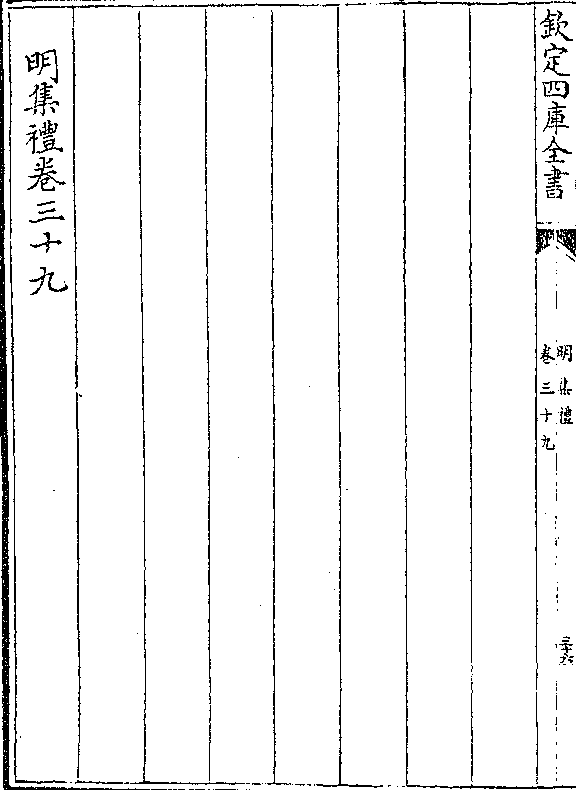 欽定四庫全書
明集禮
卷三十九
三十六
明集禮卷三十九